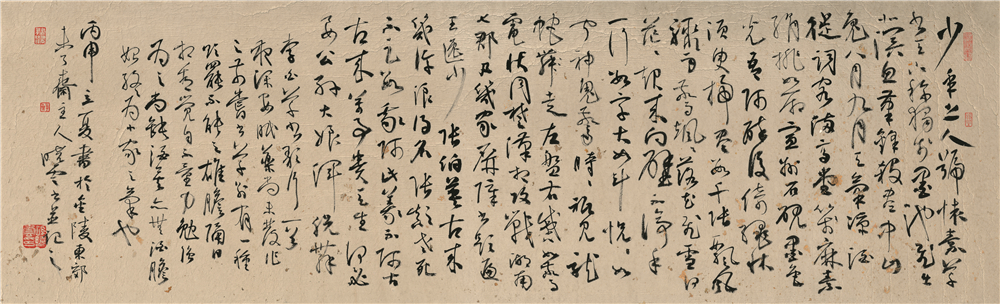 少年上人號懷素草
書天下稱獨步墨池飛出
北溟魚筆鋒殺盡中山
兔八月九月天氣涼酒
徒詞客滿高堂箋麻素
絹排數廂宣州石硯墨色
光吾師醉後倚繩床
須臾掃盡數千張飄風
驟雨驚颯颯落花飛雪何
茫茫起來向壁不停手
一行數字大如斗怳怳如
聞神鬼驚時時祗見龍
蛇走左盤右蹙如驚
電狀同楚漢相攻戰湖南
七郡凡幾家家屏障書題遍
王逸少張伯英古來
幾許浪得名張顛老死
不足數我師此義不師古
古來萬事貴天生何必
要公孫大娘渾脫舞
李白草書歌行一首
夜深安眠藥尚未發作
之前嘗書草有一種
欲罷不能之雄膽隔日
相看覺自不量力勉強
為之尚能酒亦無酒膽
始終為小家之筆也
丙申立夏書於金陵東郊
未了齋主人曉雲並記之